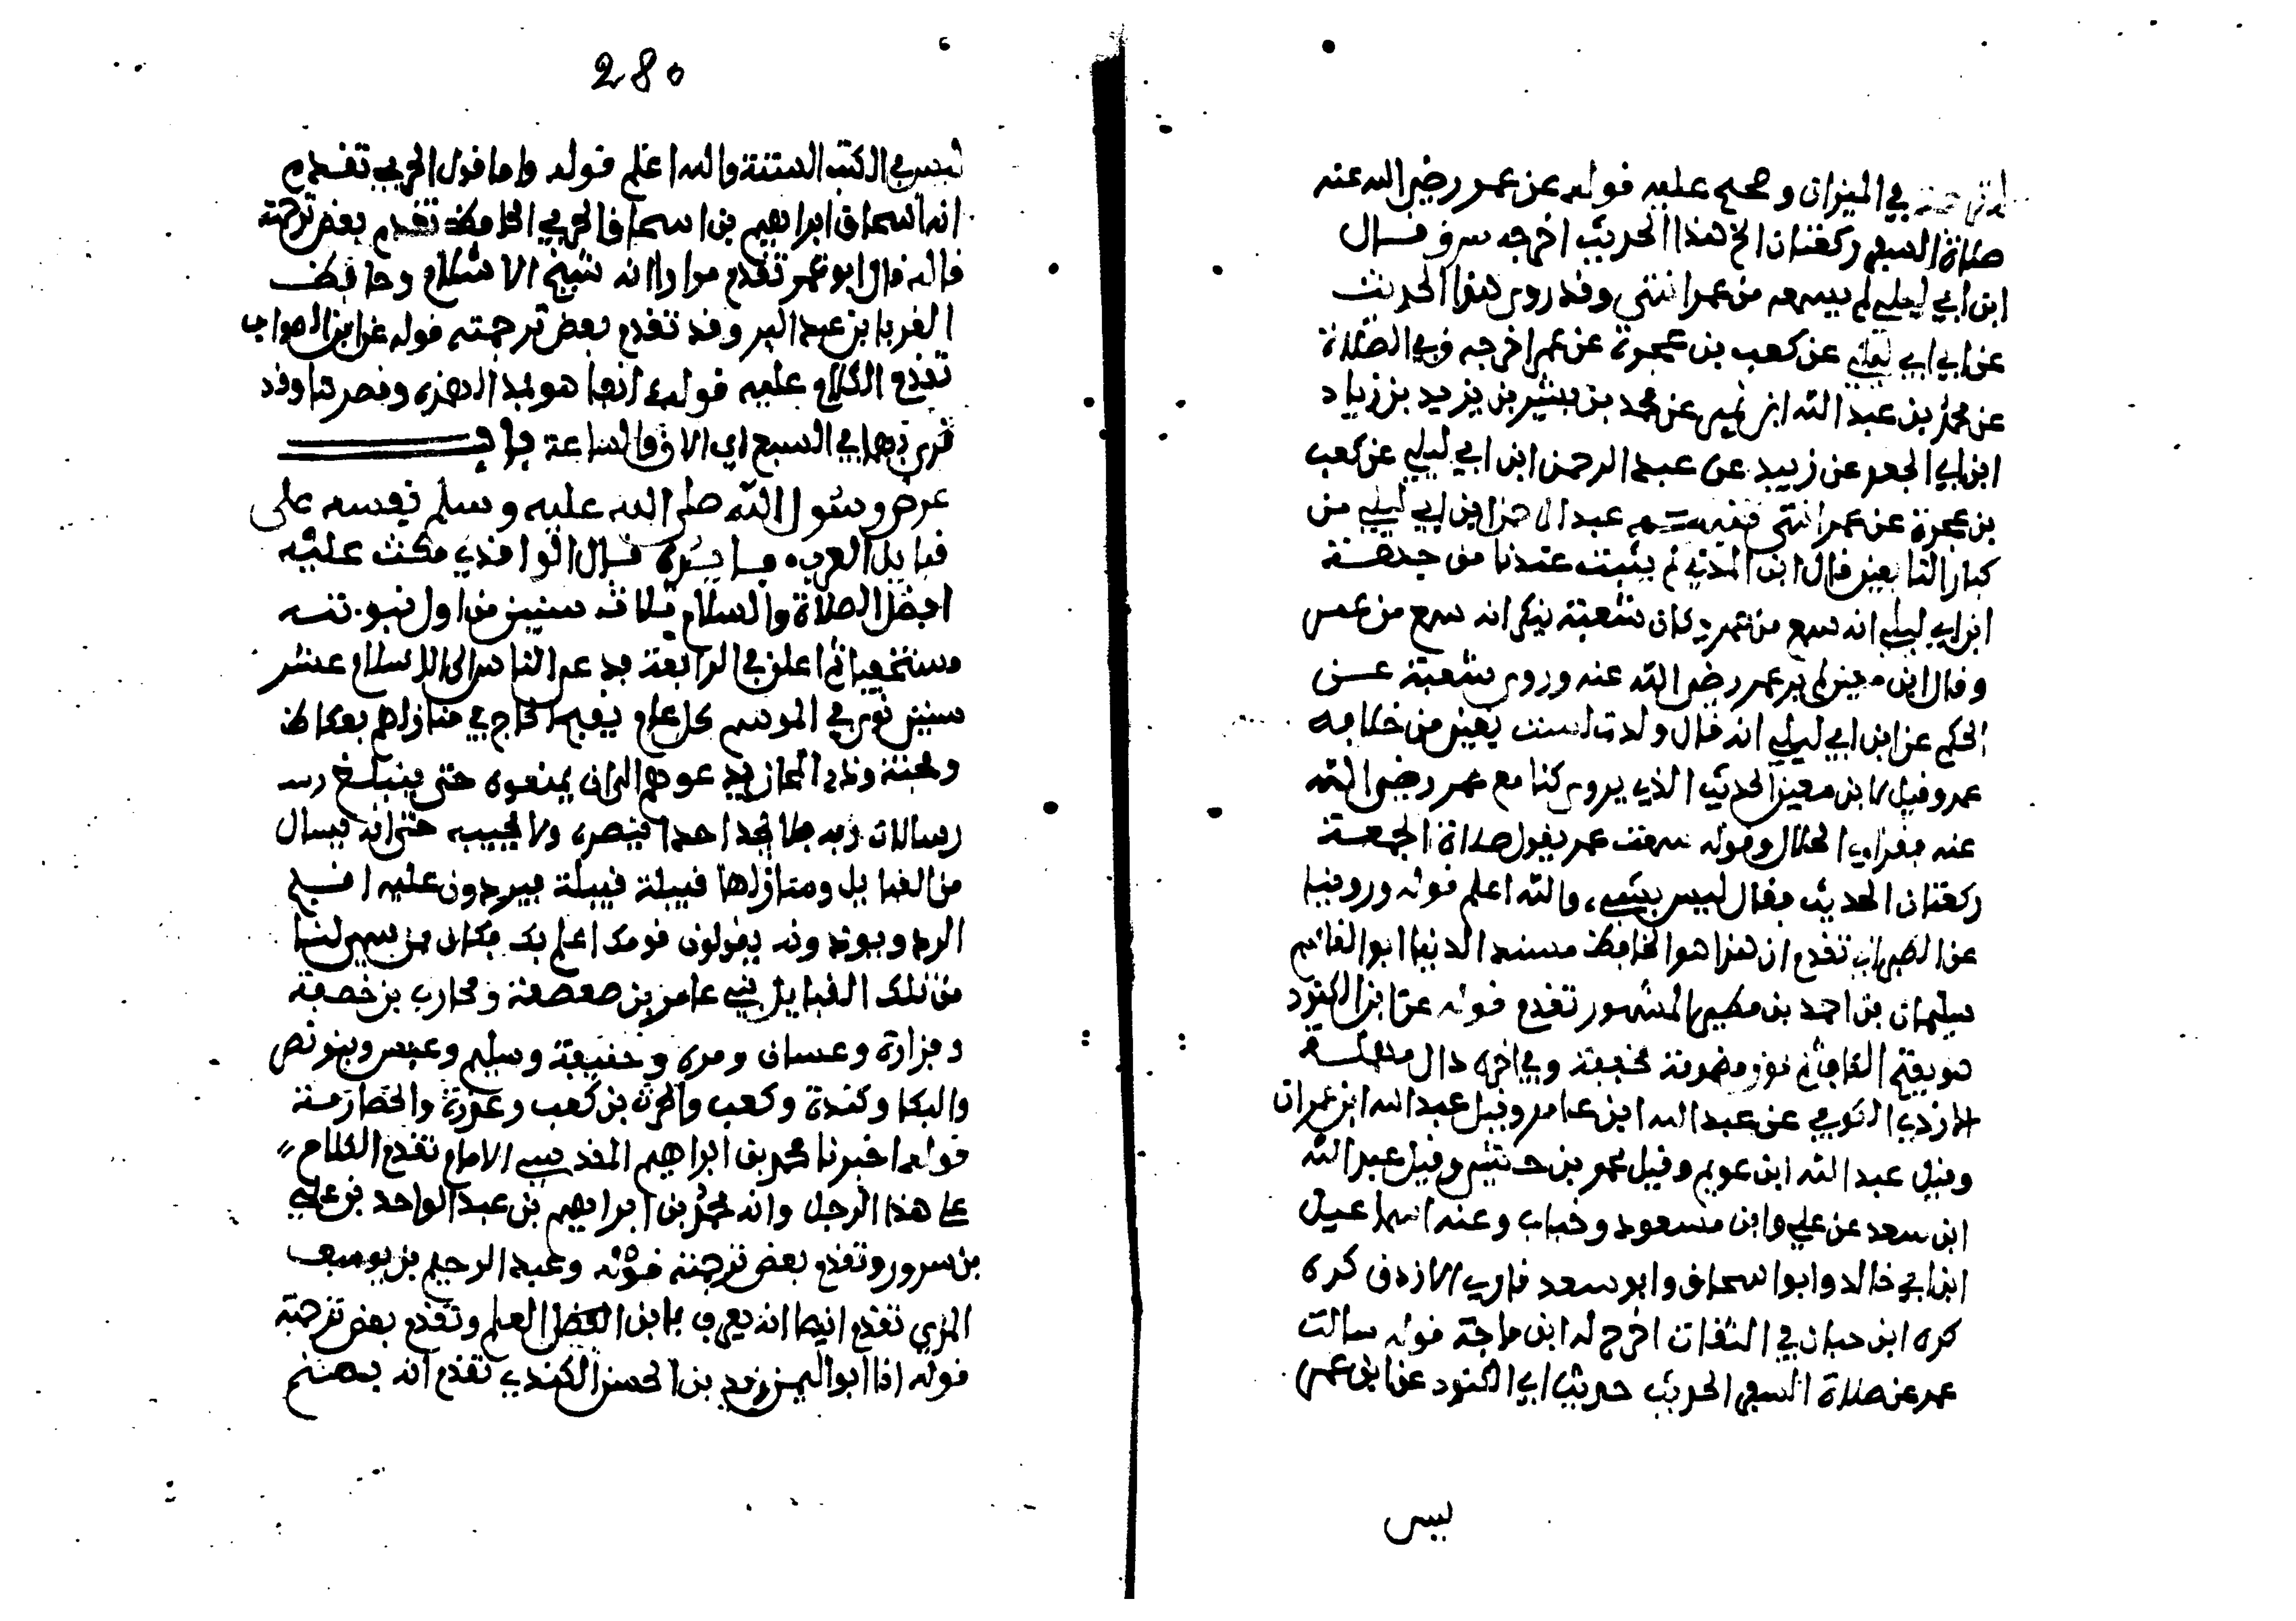 في الميزان وصحح عليه قوله عن عمر رضي الله عنه
صلاة السفر ركعتان الخ هذا الحديث اخرجه س ق وقال
ابن ابي ليلى لم يسمعه من عمر انتهى وقد روى هذا الحديث
عن ابن ابي ليلى عن كعب بن عجرة عن عمر اخرجه ق في الصلاة
عن محمد بن عبد الله ابن نمير عن محمد بن بشير بن يزيد بن زياد
ابن ابي الجعد عن زبيد عن عبد الرحمن ابن ابي ليلى عن كعب
بن عجرة عن عمر انتهى عبد الرحمن ابن ابي ليلى من
كبار التابعين قال ابن المديني لم يثبت عندنا من جهة
ابن ابي ليلى انه سمع من عمر وكان شعبة ينكر انه سمع من عمر
وقال ابن معين لم ير عمر رضي الله عنه وروى شعبة عن
الحكم عن ابن ابي ليلى انه قال ولدت لست بقين من خلافة
عمر وقيل لابن معين الحديث الذي يروى كنا مع عمر رضي الله
عنه فنراى الهلال وقوله سمعت عمر يقول صلاة الجمعة
ركعتان الحديث فقال ليس بشيء، والله اعلم قوله وروينا
عن الطبراني تقدم ان هذا هو الحافظ مسند الدنيا ابو القاسم
سليمان بن احمد بن مطير المشهور تقدم قوله عن ابن الكنود
هو بفتح الكاف ثم نون مضمومة مخففة وفي اخره دال مهملة
الازدي الكوفي عن عبد الله ابن عامر وقيل عبد الله ابن عمران
وقيل عبد الله ابن عويم وقيل عمر بن حبشي وقيل عبد الله
ابن سعد عن علي وابن مسعود وخباب وعنه اسماعيل
ابن ابي خالد وابو اسحاق وابو سعد قارب الازدي ذكره
كره ابن حبان في الثقات اخرج له ابن ماجة قوله سالت
عمر عن صلاة السفر الحديث حديث ابي الكنود عن ابن عمر
ليس
280
ليس في الكتب الستة والله اعلم قوله واما قول الحربي تقدم
انه اسحاق ابراهيم بن اسحاق الحربي الحافظ تقدم بعض ترجمته
قاله قال ابو عمر تقدم مرارا انه شيخ الاسلام وحافظ
الغرب ابن عبد البر وقد تقدم بعض ترجمته قوله عن ابن الصواب
تقدم الكلام عليه قوله انها هو بمد الهمزة وقصرها وقد
قرئ بهما في السبع اي الان والساعة باب
عرض رسول الله صلى الله عليه وسلم نفسه على
قبايل العرب قال الواقدي مكث عليه
افضل الصلاة والسلام ثلاث سنين من اول نبوته
مستخفيا ثم اعلن في الرابعة فدعى الناس الى الاسلام عشر
سنين يوافي الموسم كل عام يتبع الحاج في منازلهم بعكاظ
ومجنة وذي المجاز يدعوهم الى ان يمنعوه حتى يبلغ رسـ
رسالات ربه فلا يجد احدا ينصره ولا يجيبه حتى انه يسال
من القبايل ومنازلها قبيلة قبيلة فيردون عليه اقبح
الرد ويوذونه يقولون قومك اعلم بك فكان من سمي لنا
من تلك القبايل بني عامر بن صعصعة ومحارب بن خصفة
وفزارة وغسان ومرة وحنيفة وسليم وعبس وبنو نصر
والبكا وكندة وكعب والحرث بن كعب وعذرة والحضارمة
قوله اخبرنا محمد بن ابراهيم المقدسي الامام تقدم الكلام
على هذا الرجل وانه محمد بن ابراهيم بن عبد الواحد بن علي
بن سرور وتقدم بعض ترجمته قوله وعبد الرحيم بن يوسف
المزي تقدم ايضا انه يعرف بابن العلم وتقدم بعض ترجمته
قوله انا ابو اليمن زيد بن الحسن الكندي تقدم انه بضم